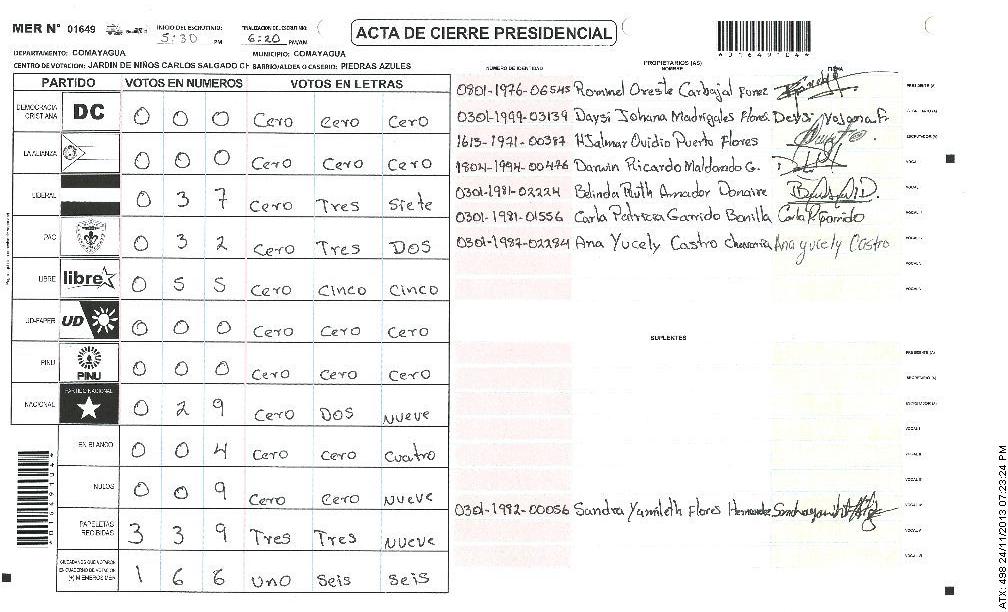 MER N° 01649
INICIO DEL ESCRUTINIO: 5:30 PM
FINALIZACION DEL ESCRUTINIO: 6:20 PM/AM
ACTA DE CIERRE PRESIDENCIAL
DEPARTAMENTO: COMAYAGUA MUNICIPIO: COMAYAGUA
CENTRO DE VOTACION: JARDIN DE NIÑOS CARLOS SALGADO CH BARRIO/ALDEA O CASERIO: PIEDRAS AZULES
PARTIDO VOTOS EN NUMEROS VOTOS EN LETRAS
DEMOCRACIA CRISTIANA DC 0 0 0 Cero Cero Cero
LA ALIANZA 0 0 0 Cero Cero Cero
LIBERAL 0 3 7 Cero Tres Siete
PAC 0 3 2 Cero Tres DOS
LIBRE libre 0 5 5 Cero Cinco Cinco
UD-FAPER UD 0 0 0 Cero Cero Cero
PINU PINU 0 0 0 Cero Cero Cero
NACIONAL PARTIDO NACIONAL 0 2 9 Cero DOS Nueve
EN BLANCO 0 0 4 Cero Cero Cuatro
NULOS 0 0 9 Cero Cero Nueve
PAPELETAS RECIBIDAS 3 3 9 Tres Tres Nueve
CIUDADANOS QUE VOTARON EN CUADERNO DE VOTACION (+) MIEMBROS MER 1 6 6 Uno Seis Seis
NUMERO DE IDENTIDAD PROPIETARIOS (AS) NOMBRE FIRMA
0801-1976-06545 Rommel Oreste Carbajal Funez PRESIDENTE (A)
0301-1999-03139 Daysi Johana Madrigales Flores
1613-1971-00387 Hjalmar Ovidio Puerto Flores ESCRUTADOR (A)
1804-1994-00476 Darwin Ricardo Maldonado G.
0301-1981-02224 Belinda Ruth Amador Donaire
0301-1981-01556 Carla Patrocia Garrido Bonilla Carla P Garrido
0301-1987-02284 Ana Yucely Castro Chavarria Ana yucely Castro
SUPLENTES
PRESIDENTE (A)
SECRETARIO (A)
ESCRUTADOR (A)
0301-1982-00056 Sandra Yamileth Flores Hernandez
ATX: 498 24/11/2013 07:23:24 PM